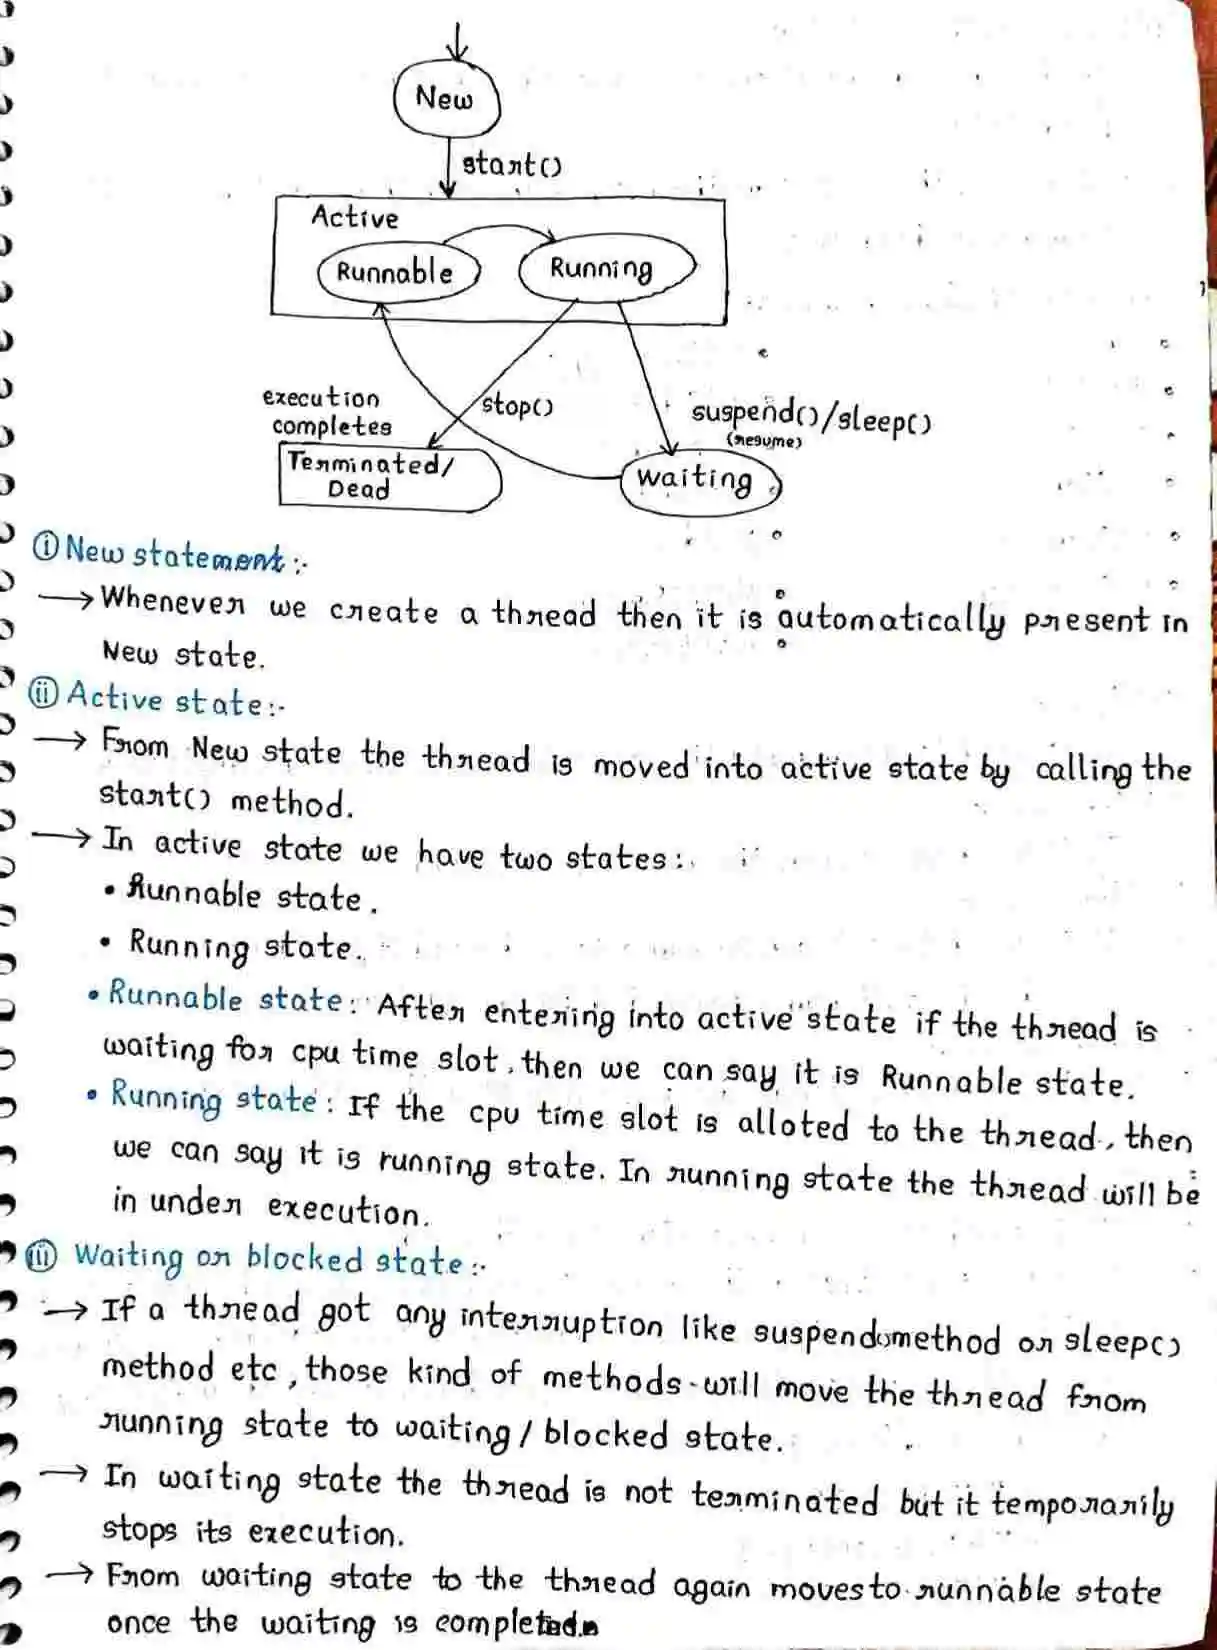 New
start()
Active
Runnable
Running
execution
completes
stop()
suspend()/sleep()
(resume)
Terminated/
Dead
Waiting
(i) New statement :-
→ Whenever we create a thread then it is automatically present in
New state.
(ii) Active state:-
→ From New state the thread is moved into active state by calling the
start() method.
→ In active state we have two states:
• Runnable state.
• Running state.
• Runnable state: After entering into active state if the thread is
waiting for cpu time slot, then we can say it is Runnable state.
• Running state: If the cpu time slot is alloted to the thread, then
we can say it is running state. In running state the thread will be
in under execution.
(iii) Waiting or blocked state:-
→ If a thread got any interruption like suspend() method or sleep()
method etc, those kind of methods will move the thread from
running state to waiting/blocked state.
→ In waiting state the thread is not terminated but it temporarily
stops its execution.
→ From waiting state to the thread again moves to runnable state
once the waiting is completed.